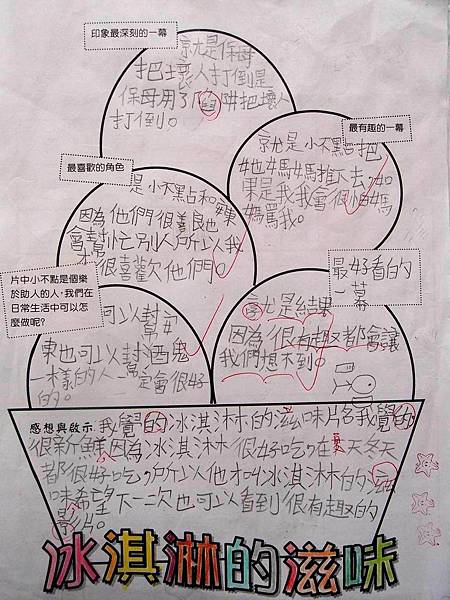 印象最深刻的一幕
就是保母
把壞人打倒是
保母用了陷阱把壞人
打倒。
最有趣的一幕
就是小不點把
她媽媽推下去,如
果是我我會很怕媽
媽罵我。
最喜歡的角色
是小不點和
因為他們很善良也
會幫忙別人所以我
很喜歡他們。
片中小不點是個樂
於助人的人,我們在
日常生活中可以怎
麼做呢?
可以幫
東也可以封酒鬼
一樣的人一定會很好
的。
最好看的
一幕
就是結果
因為很有趣都會讓
我們想不到。
感想與啟示
我覺的冰淇淋的滋味片名我覺的
很新鮮因為冰淇淋很好吃,在夏天冬天
都很好吃,所以他才叫冰淇淋的滋
味希望下一次也可以看到很有趣的
影片。
冰淇淋的滋味